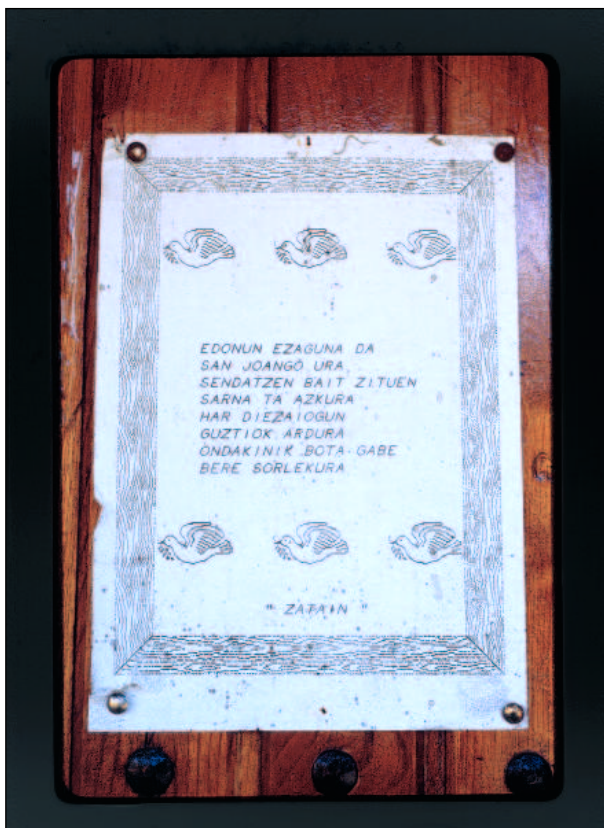 EDONUN EZAGUNA DA
SAN JOANGO URA
SENDATZEN BAIT ZITUEN
SARNA TA AZKURA
HAR DIEZAIOGUN
GUZTIOK ARDURA
ONDAKINIK BOTA-GABE
BERE SORLEKURA
" ZATAIN "